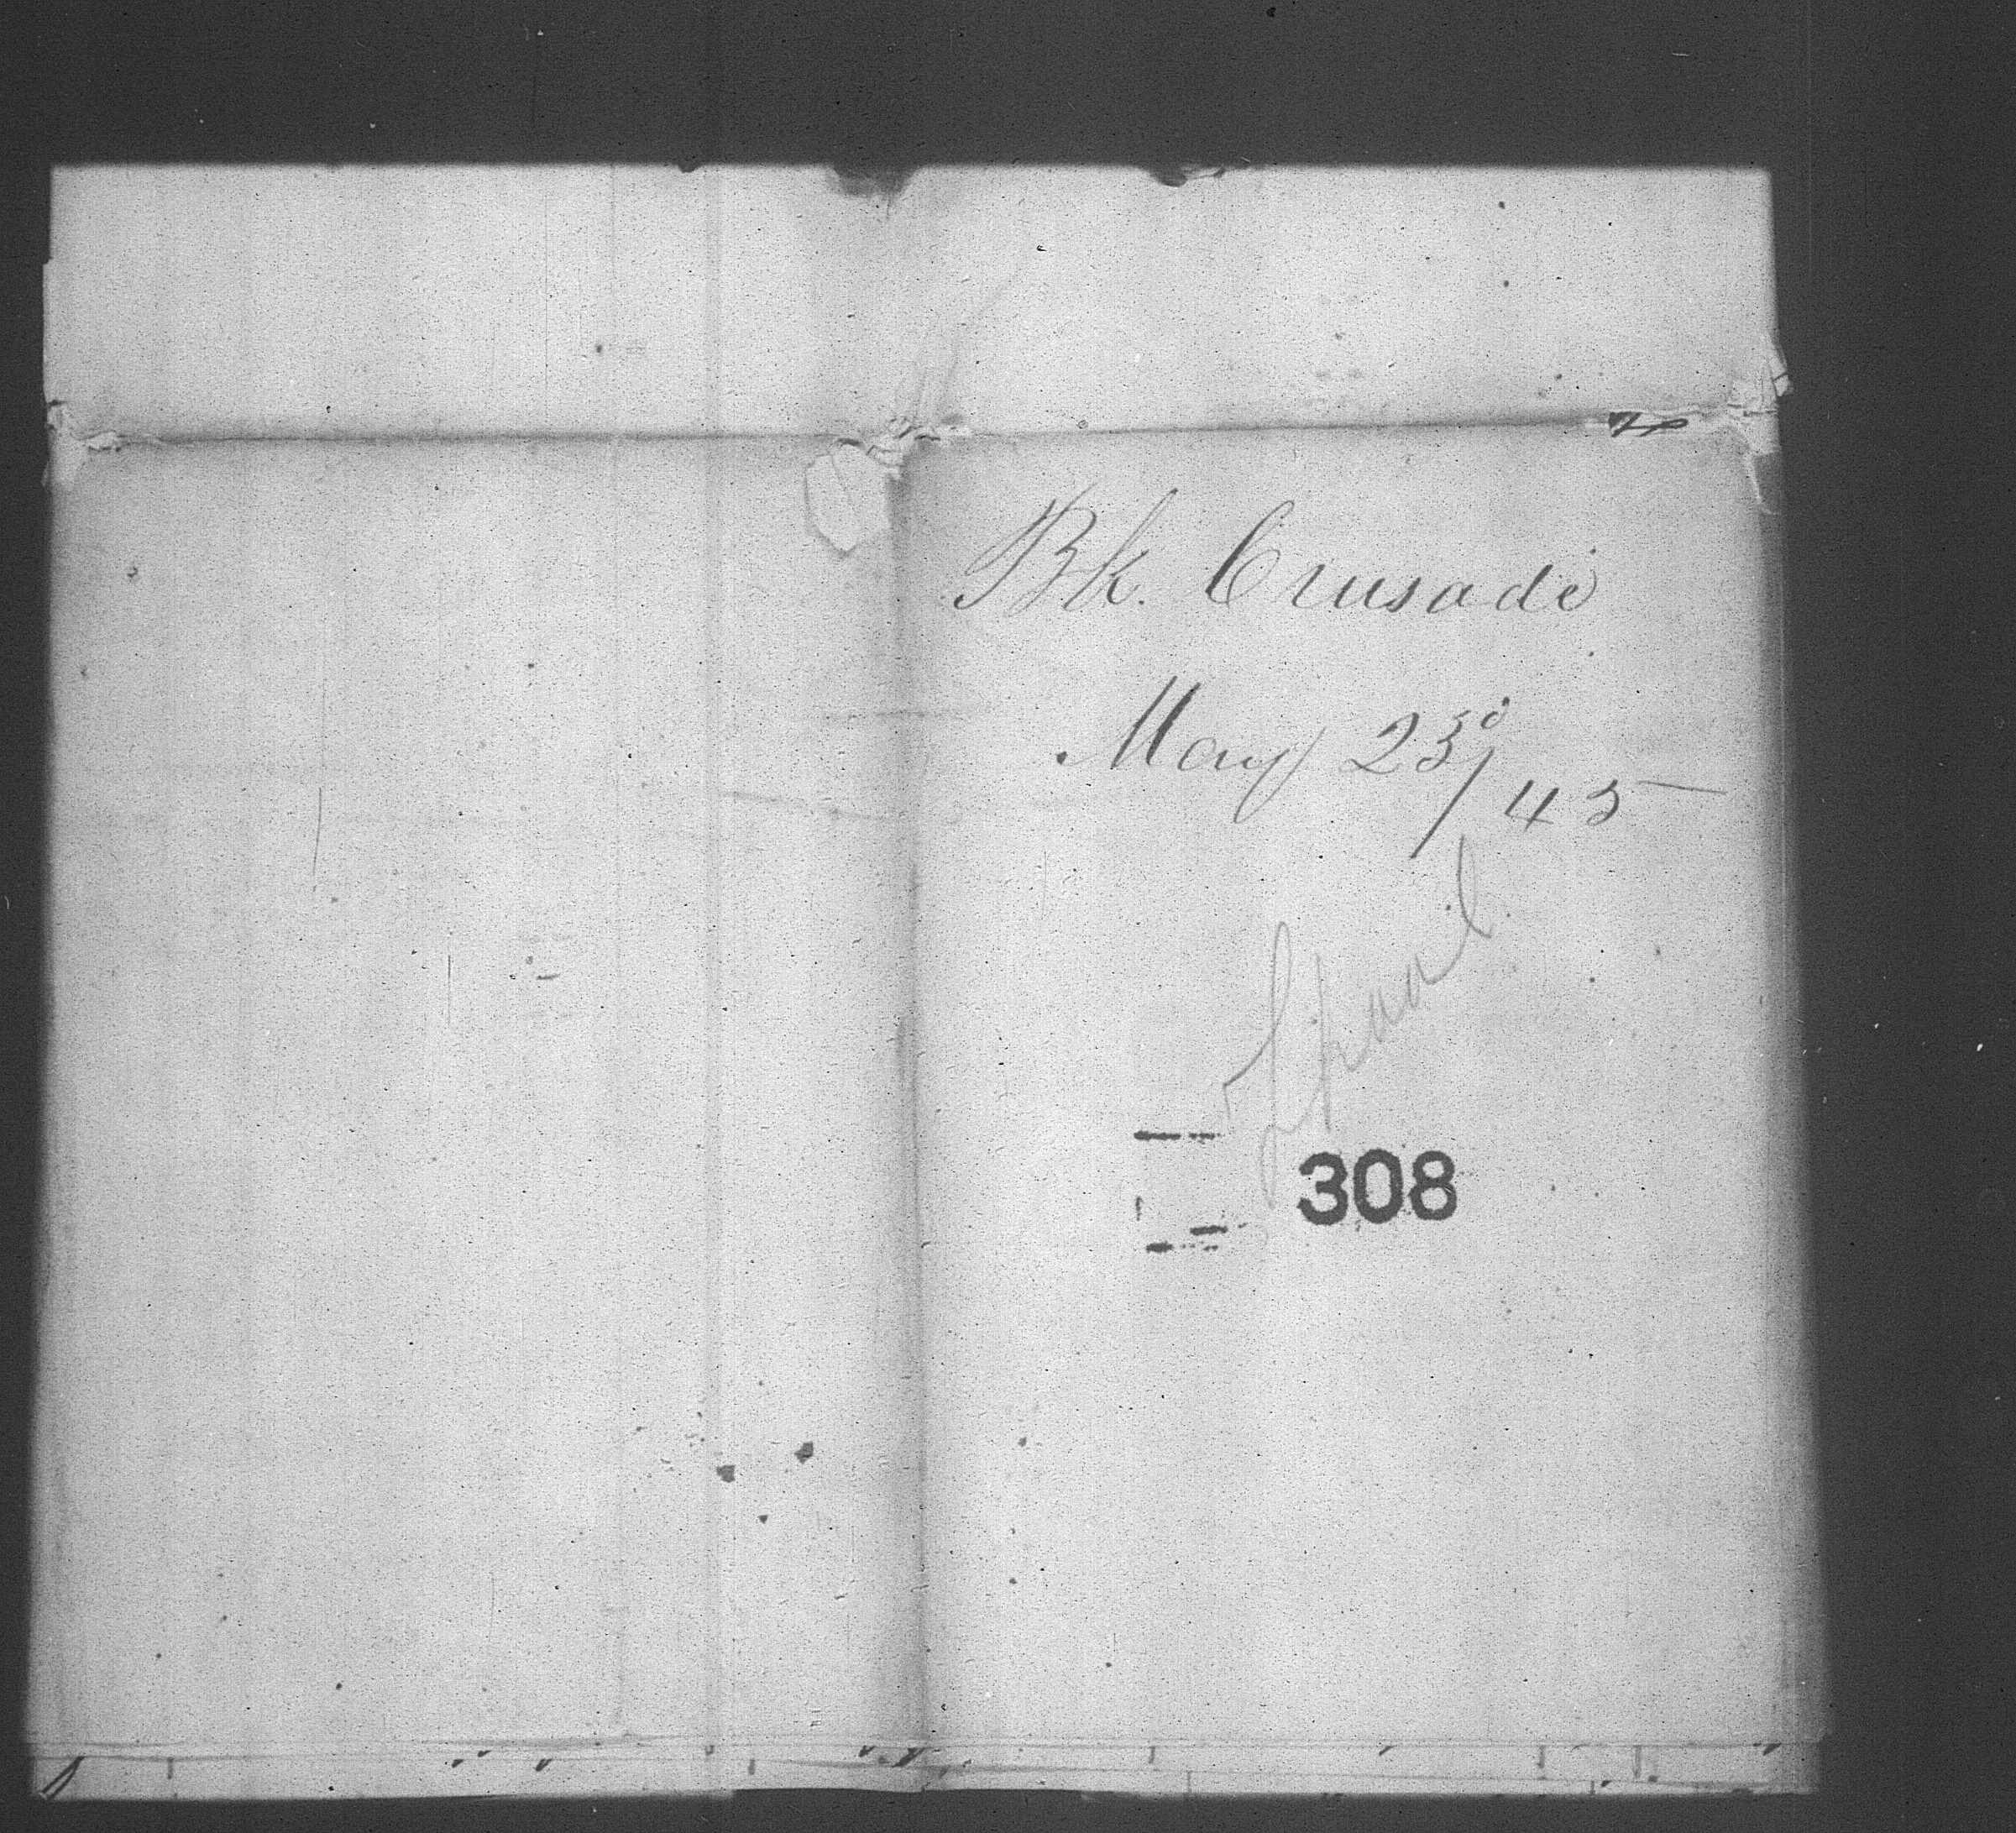 Bk. Crusade
May 23d/45
308